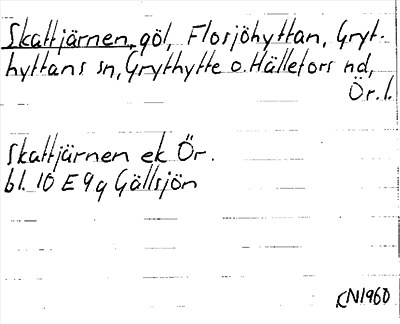 Skattjärnen, göl, Flosjöhyttan, Gryt-
hyttans sn, Grythytte o. Hällefors nd,
Ör. l.
Skattjärnen ek Ör.
bl. 10 E 9 g Gällsjön
KN1960